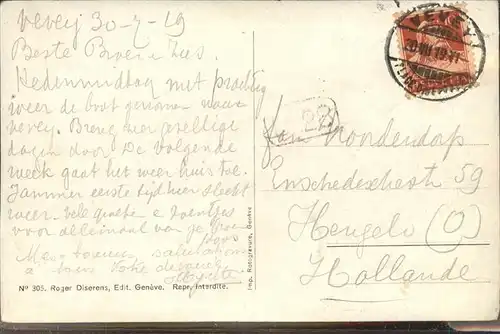 Vevey 30-7-19
Beste Broer en Zus
Hedenmiddag met prachtig
weer de boot genomen naar
Vevey. Breng hier gezellige
dagen door De volgende
week gaat het weer huis toe.
Jammer eerste tijd hier slecht
weer. vele groeten & zoentjes
voor allemaal van je broer
Meilleures salutations
à tous Votre
Nº 305. Roger Diserens, Edit. Genève. Repr. Interdite.
Imp. Rotogravure, Genève
VEVEY
22
Fam Nordendorp
Enschedeschestr 59
Hengelo (O)
Hollande